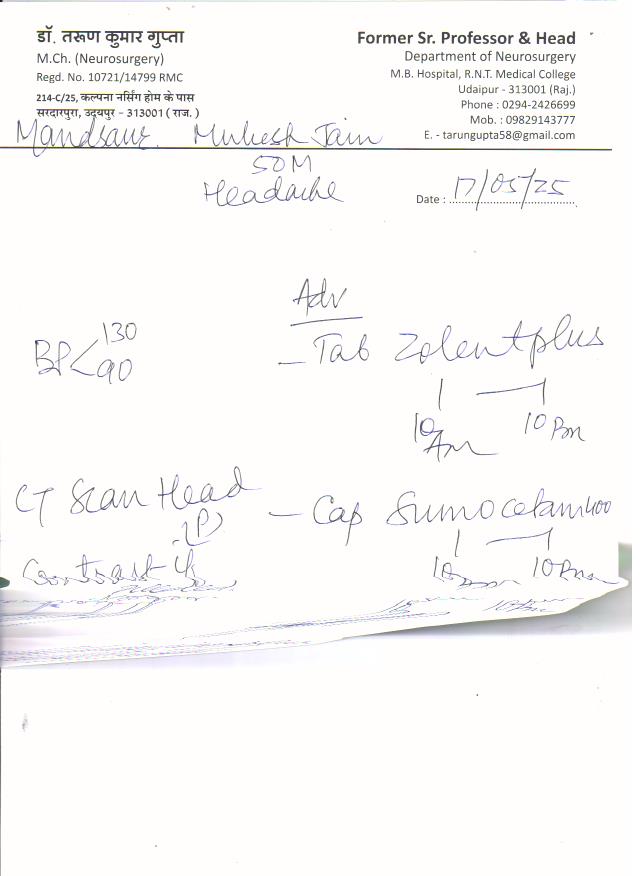 डॉ. तरूण कुमार गुप्ता
M.Ch. (Neurosurgery)
Regd. No. 10721/14799 RMC
214-C/25, कल्पना नर्सिंग होम के पास
सरदारपुरा, उदयपुर - 313001 ( राज. )
Former Sr. Professor & Head
Department of Neurosurgery
M.B. Hospital, R.N.T. Medical College
Udaipur - 313001 (Raj.)
Phone : 0294-2426699
Mob. : 09829143777
E. - tarungupta58@gmail.com
Mandsaur Mukesh Jain
50M
Headache
Date : 17/05/25
Adv
BP < 130
90
- Tab Zolent plus
10 Am — 10 Pm
CT Scan Head
(P)
Contrast if
- Cap Sumocetam 400
10 — 10 Pm